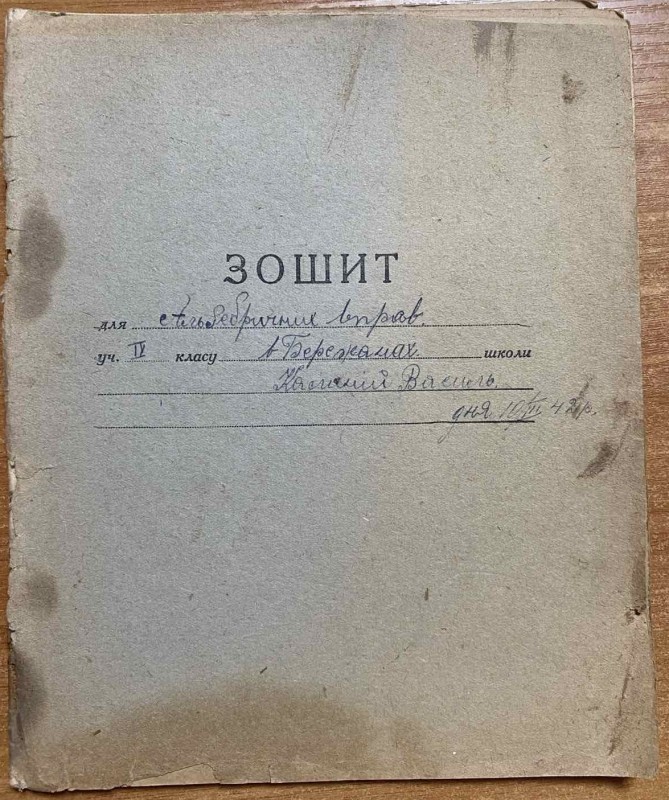 ЗОШИТ
для Альґебричних вправ.
уч. IV класу в Бережанах школи
Василь.
дня 10/III 42р.